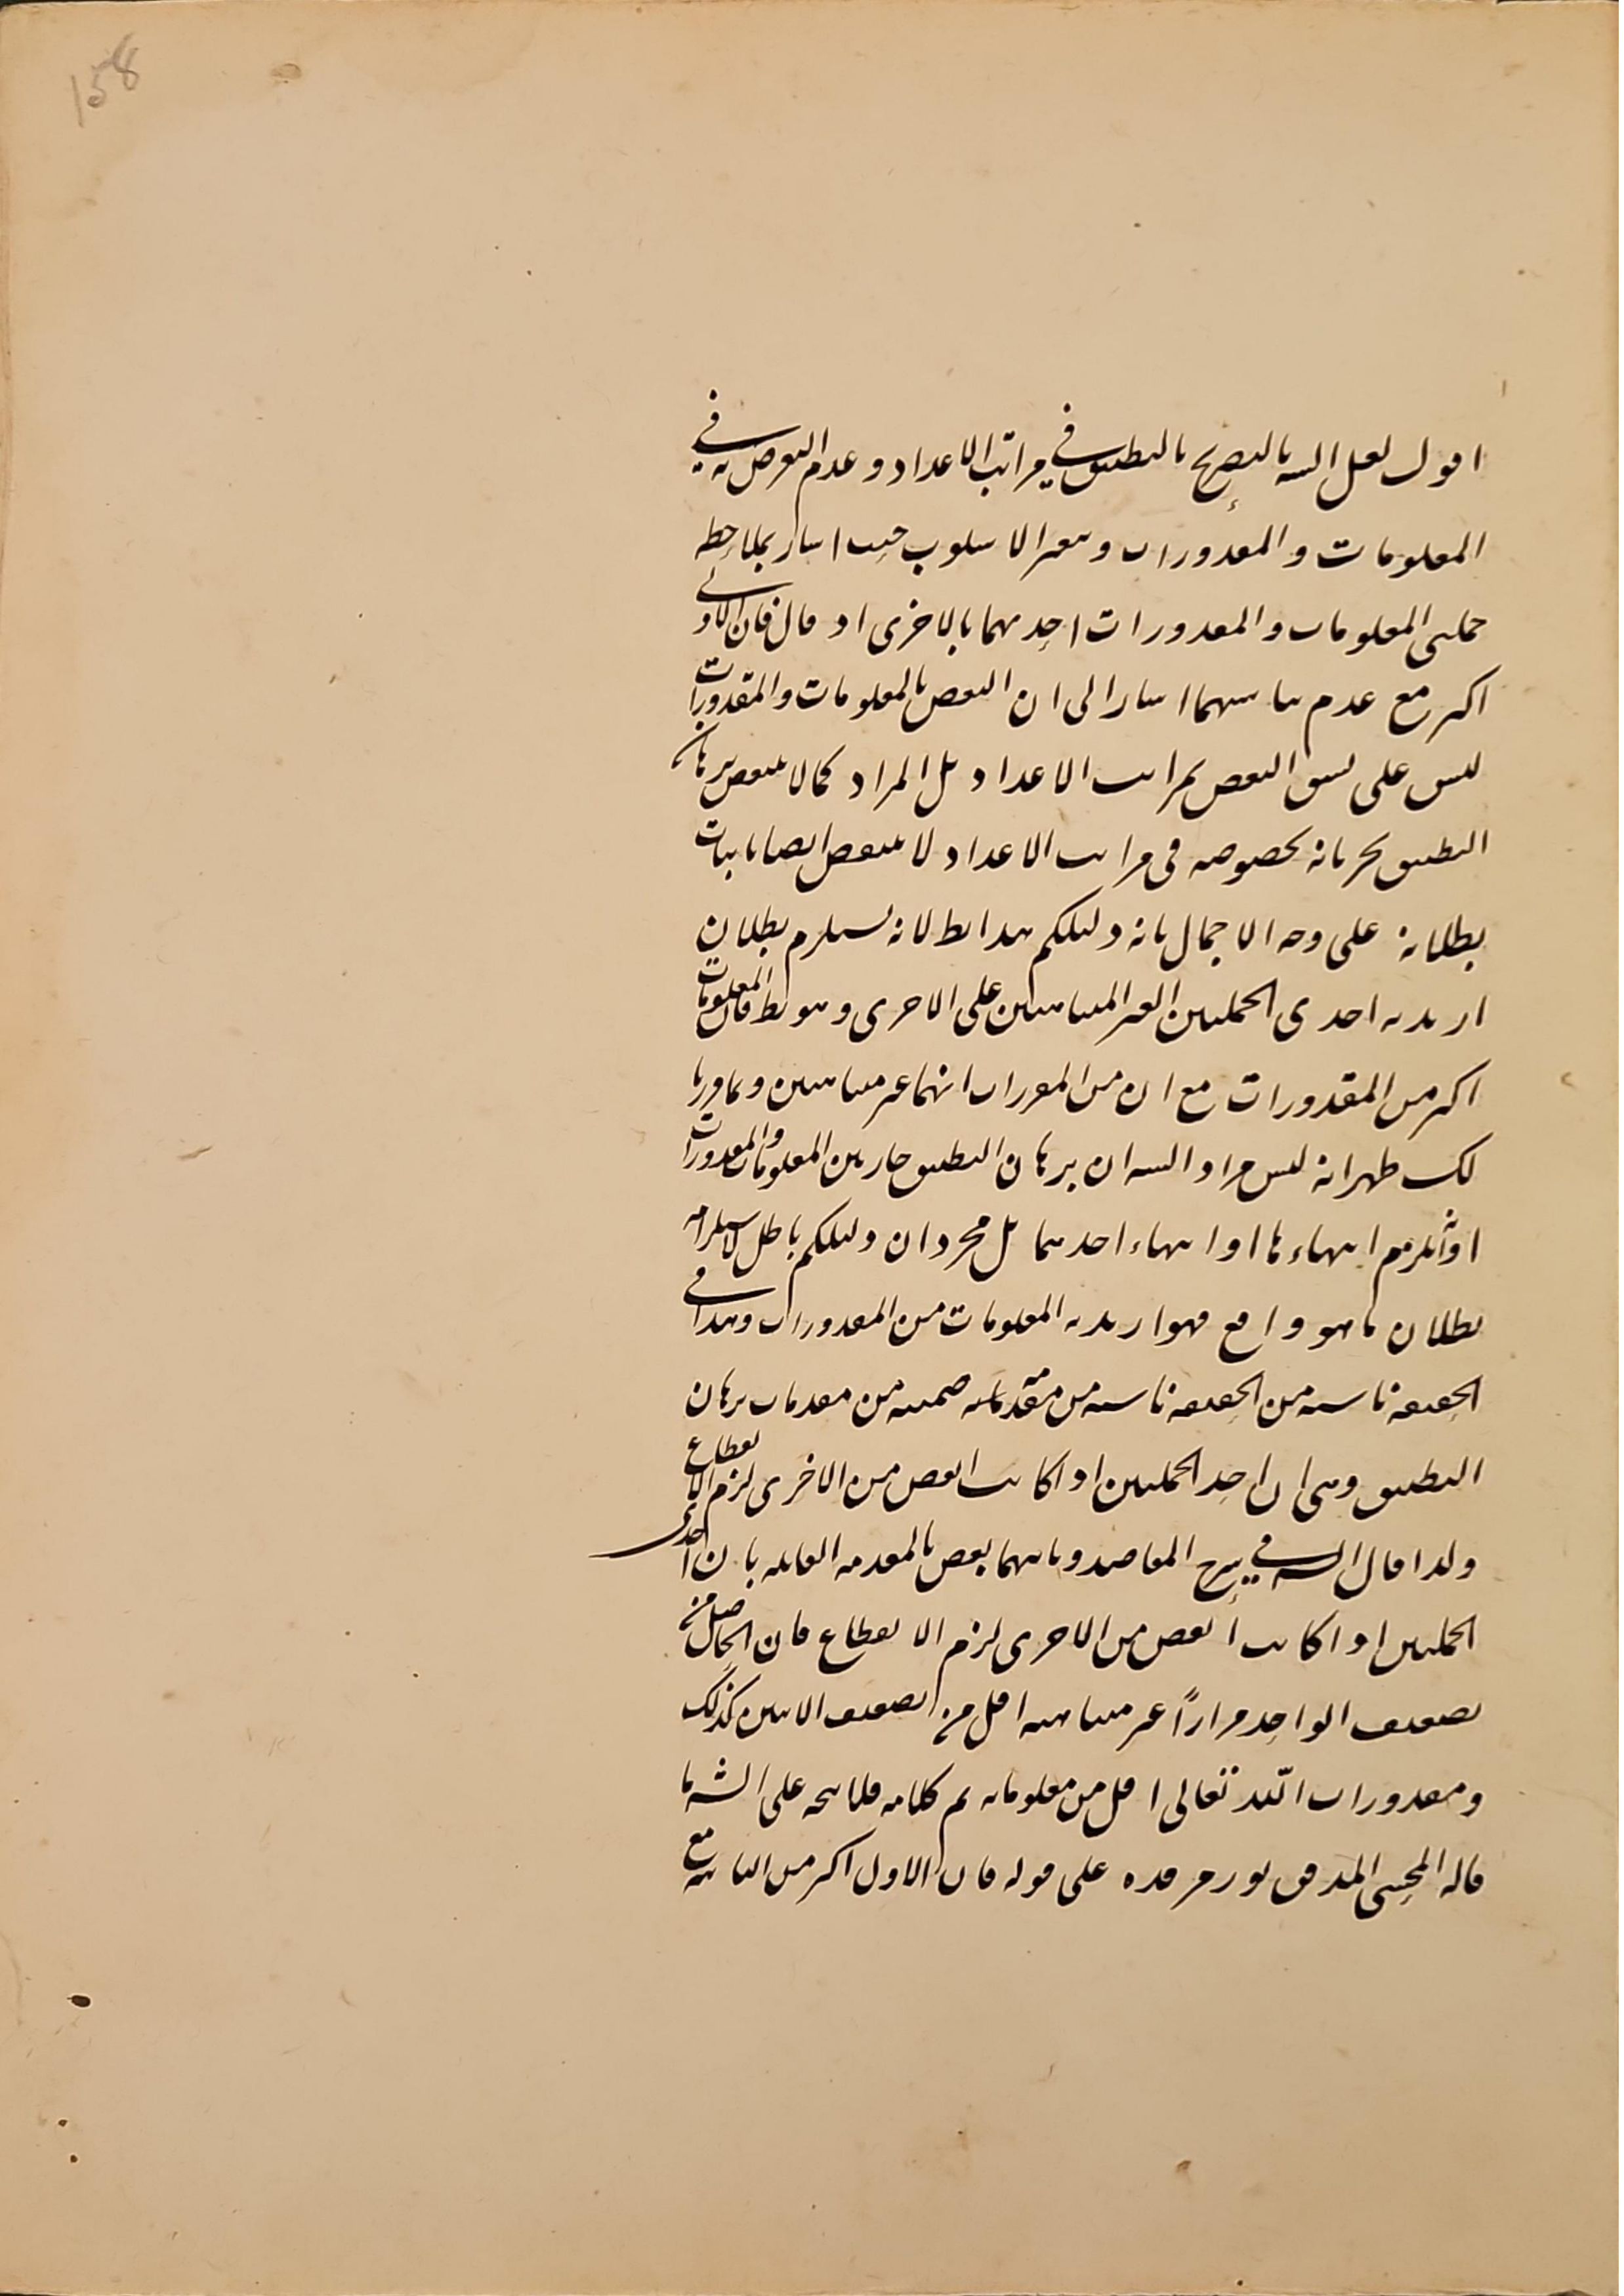 158
اقول لعل الشه بالتصريح بالتطبيق في مراتب الاعداد وعدم التعرض به في
المعلومات والمقدورات وتغير الاسلوب حيث اشار بملاحظة
جملتى المعلومات والمقدورات احديهما بالاخرى اذ قال فان الاولى
اكثر مع عدم تناهيهما اشارا الى ان النقض بالمعلومات والمقدورات
ليس على نسق النقض بمراتب الاعداد بل المراد كما لا ينتقض برهان
التطبيق بجريانه بخصوصه فى مراتب الاعداد لا ينتقض ايضا باثبات
بطلانه على وجه الاجمال بانه دليلكم هذا بط لانه يستلزم بطلان
ازيدية احدى الجملتين الغير المتناهيتين على الاخرى وهو بط فان المعلومات
اكثر من المقدورات مع ان من المقررات انهما غير متناهيتين وبما قررنا
لك ظهر انه ليس مراد الشه ان برهان التطبيق جار بين المعلومات والمقدورات
او يلزم انتهاءها او انتهاء احديهما بل مجرد ان دليلكم باطل لاستلزامه
بطلان ما هو واقع فهو ازيدية المعلومات من المقدورات وهذا في
الحقيقة ناشية من الحقيقة ناشية من مقدمة ضمنية من مقدمات برهان
التطبيق وهى ان احد الجملتين اذا كانت انقص من الاخرى لزم الانقطاع
ولذا قال الشه في شرح المقاصد وثانيهما نقض بالمقدمة القائلة بان احدى
الجملتين اذا كانت انقص من الاخرى لزم الانقطاع فان الحاصل من
تضعيف الواحد مراراً غير متناهية اقل من تضعيف الاثنين كذلك
ومقدورات الله تعالى اقل من معلوماته تم كلامه فلا يتجه على الشه ما
قاله المحشى المدقق نور مرقده على قوله فان الاول اكثر من الثانية مع